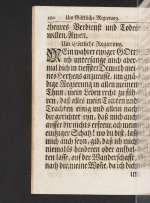 Um Göttliche Regierung.
theures Verdienst und Todes
willen, Amen.
Um göttliche Regierung.
MEin wahrer ewiger GOtt
ich unterfange mich aber-
mal dich in tiefster Demuth mei-
nes Hertzens anzuruffe, um gnä-
dige Regierung in allen meinen
Thun, mein Leben recht zufüh-
ren, daß alles mein Tichten und
Trachten einig und allein nach
dir gerichtet seyn, daß mich auch
ausser dir nichts erfreue, ach mein
einziger Schatz! wo du bist, laß
mich auch seyn, gib, daß ich mich
niemals besonders aber
ten lasse, auf der Wanderschafft,
nach dir, meine